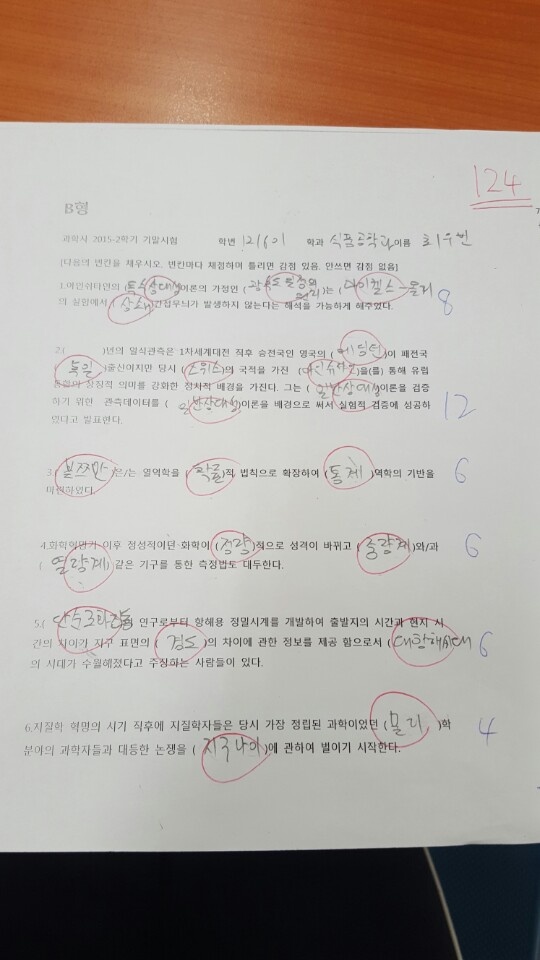 124
B형
과학사 2015-2학기 기말시험 학번 121601 학과 식품공학과 이름 최우빈
[다음의 빈칸을 채우시오. 빈칸마다 채점하며 틀리면 감점 있음. 안쓰면 감점 없음]
1.아인쉬타인의 (특수상대성)이론의 가정인 (광속도일정의 원리)는 (마이켈스-몰리
의 실험에서 (상쇄)간섭무늬가 발생하지 않는다는 해석을 가능하게 해주었다. 8
2.( )년의 일식관측은 1차세계대전 직후 승전국인 영국의 (에딩턴)이 패전국
(독일)출신이지만 당시 (스위스)의 국적을 가진 (아인슈타인)을(를) 통해 유럽
통합의 상징적 의미를 강화한 정치적 배경을 가진다. 그는 (일반상대성)이론을 검증
하기 위한 관측데이터를 (일반상대성)이론을 배경으로 써서 실험적 검증에 성공하
였다고 발표한다. 12
3.(볼쯔만)은/는 열역학을 (확률)적 법칙으로 확장하여 (통계)역학의 기반을 6
마련하였다.
4.화학혁명기 이후 정성적이던 화학이 (정량)적으로 성격이 바뀌고 (중량계)와/과 6
(열량계) 같은 기구를 통한 측정법도 대두한다.
5.( 연구로부터 항해용 정밀시계를 개발하여 출발지의 시간과 현지 시
간의 차이가 지구 표면의 (경도)의 차이에 관한 정보를 제공 함으로서 (대항해시대 6
의 시대가 수월해졌다고 주장하는 사람들이 있다.
6.지질학 혁명의 시기 직후에 지질학자들은 당시 가장 정립된 과학이었던 (물리)학 4
분야의 과학자들과 대등한 논쟁을 (지구나이)에 관하여 벌이기 시작한다.